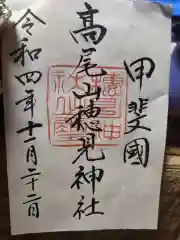 甲斐國
高尾山穂見神社
令和四年十一月二十二日